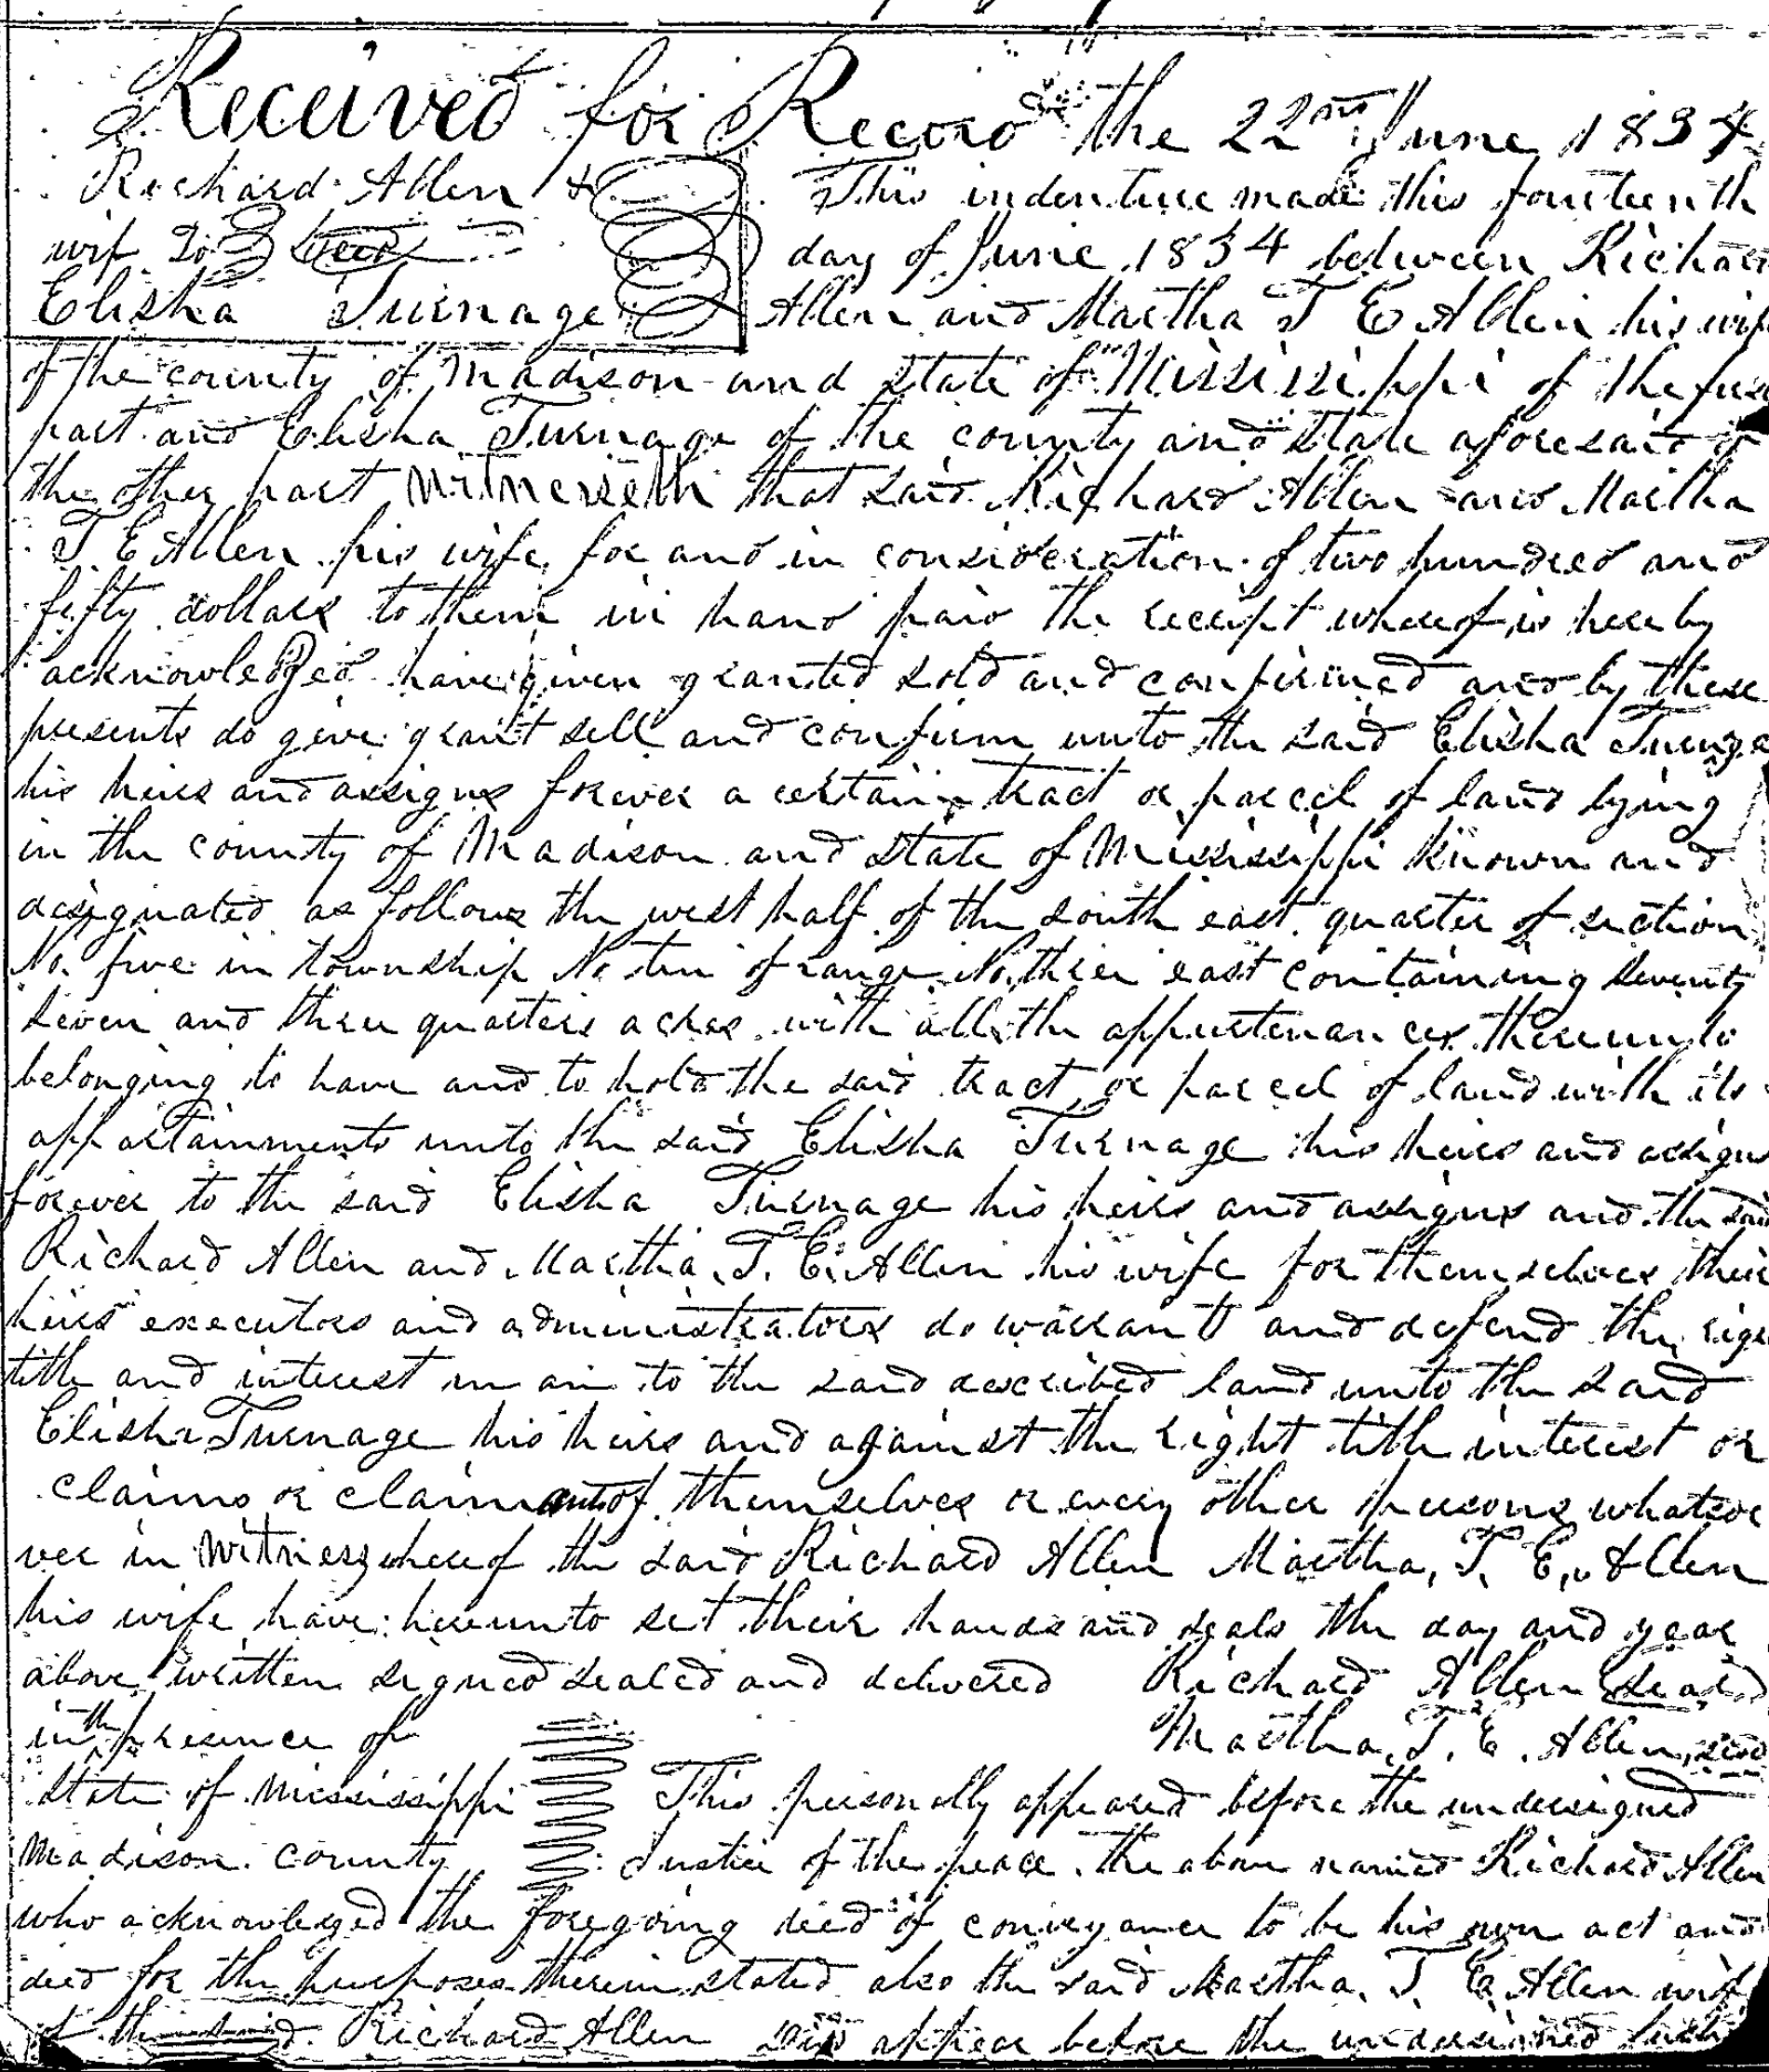 Received for Record the 22nd June 1834
Richard Allen &
wif To Deed
Elisha Turnage
This indenture made this fourteenth
day of June 1834 between Richard
Allen and Martha T E Allen his wife
of the county of Madison and state of Missisippi of the first
part and Elisha Turnage of the county and state aforesaid of
the other part Witnesseth that said Richard Allen and Martha
T E Allen his wife for and in consideration of two hundred and
fifty dollars to them in hand paid the receipt whereof is hereby
acknowledged have given granted sold and confirmed and by these
presents do give grant sell and confirm unto the said Elisha Turnage
his heirs and assigns forever a certain tract or parcel of land lying
in the county of Madison and state of Mississippi known and
designated as follows the west half of the south east quarter of section
No. five in township No ten of range No. three east containing seventy
seven and three quarters acres with all the appurtenances thereunto
belonging to have and to hold the said tract or parcel of land with its
appartainments unto the said Elisha Turnage his heirs and assigns
forever to the said Elisha Turnage his heirs and assigns and the said
Richard Allen and Martha. T. E. Allen his wife for themselves their
heirs executors and administrators do warrant and defend the right
title and interest in an to the said described land unto the said
Elisha Turnage his heirs and against the right title interest or
claims or claimants of themselves or every other persons whatsoe
ver in Witness whereof the said Richard Allen Martha, T, E, Allen
his wife have hereunto set their hands and seals the day and year
above written signed sealed and delivered Richard Allen seal
in the presence of Martha. T. E. Allen, seal
State of Mississippi
Madison County
This personally appeared before the undersigned
Justice of the peace the above named Richard Allen
who acknowledged the foregoing deed of conveyance to be his own act and
deed for the purposes therein stated also the said Martha. T. E. Allen wife
of the said Richard Allen did appear before the undersigned